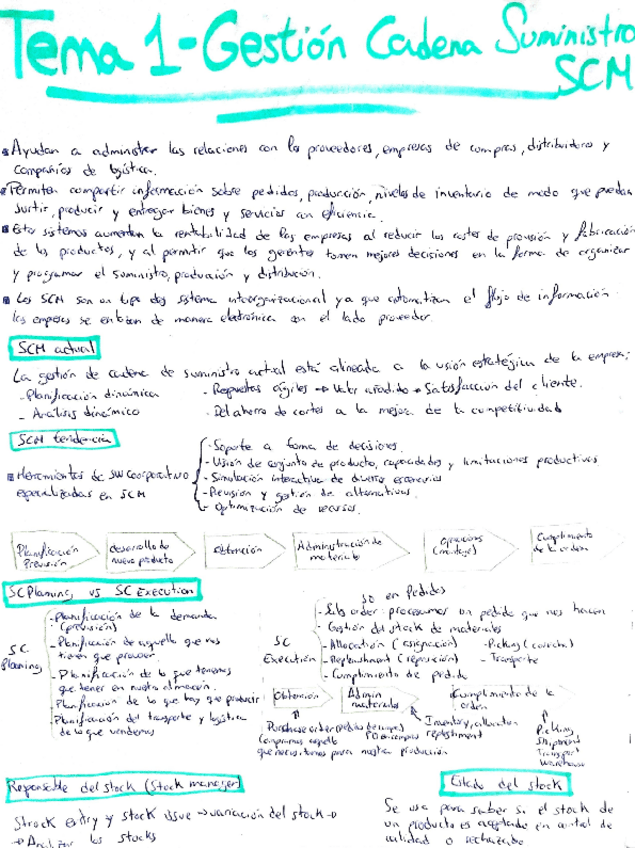 Tema 1-Gestión Cadena Suministro
SCM
Ayudan a administrar las relaciones con los proveedores, empresas de compras, distribuidores y
compañías de logística.
Permiten compartir información sobre pedidos, producción, niveles de inventario de modo que puedan
surtir, producir y entregar bienes y servicios con eficiencia.
Estos sistemas aumentan la rentabilidad de las empresas al reducir los costes de provisión y fabricación
de los productos, y al permitir que los gerentes tomen mejores decisiones en la forma de organizar
y programar el suministro, producción y distribución.
Los SCM son un tipo de sistema interorganizacional ya que automatizan el flujo de información
las empresas se enlazan de manera electrónica con el lado proveedor
SCM actual
La gestión de cadena de suministro actual está alineada a la visión estratégica de la empresa:
- Planificación dinámica
- Respuestas ágiles → Valor añadido → Satisfacción del cliente.
- Análisis dinámico
- Del ahorro de costes a la mejora de la competitividad
SCM tendencia
Herramientas de SW cooperativo
especializadas en SCM
- Soporte a toma de decisiones.
- Visión de conjunto de producto, capacidades y limitaciones productivas
- Simulación interactiva de diversos escenarios
- Revisión y gestión de alternativas.
- Optimización de recursos.
Planificación
Previsión
desarrollo de
nuevo producto
Obtención
Administración de
materiales
operaciones
(montaje)
Cumplimiento
de la orden
SC Planing vs SC Execution
SC
Planing
- Planificación de la demanda
(previsión)
- Planificación de aquello que nos
tienen que proveer
- Planificación de lo que tenemos
que tener en nuestro almacén.
- Planificación de lo que hay que producir
- Planificación del transporte y logística
de lo que vendemos
SO en Pedidos
SC
Execution
- Sales order: procesamos un pedido que nos hacen
- Gestión del stock de materiales
- Allocation (asignación)
- Picking
- Replenishment (reposición)
- Transporte
- Cumplimiento de pedido
Obtención
Admin
materiales
Cumplimiento de la
orden
Purchase order (pedidos de compra)
PO en compras
Compramos aquello
que necesitamos para nuestra producción
Inventory, allocation
replenishment
Picking
Shipment
Transport
Warehouse
Responsable del stock (Stock manager)
Strock entry y stock issue → variación del stock →
→ Analizar los stocks
Estado del stock
Se usa para saber si el stock de
un producto es aceptado en control de
calidad o rechazado